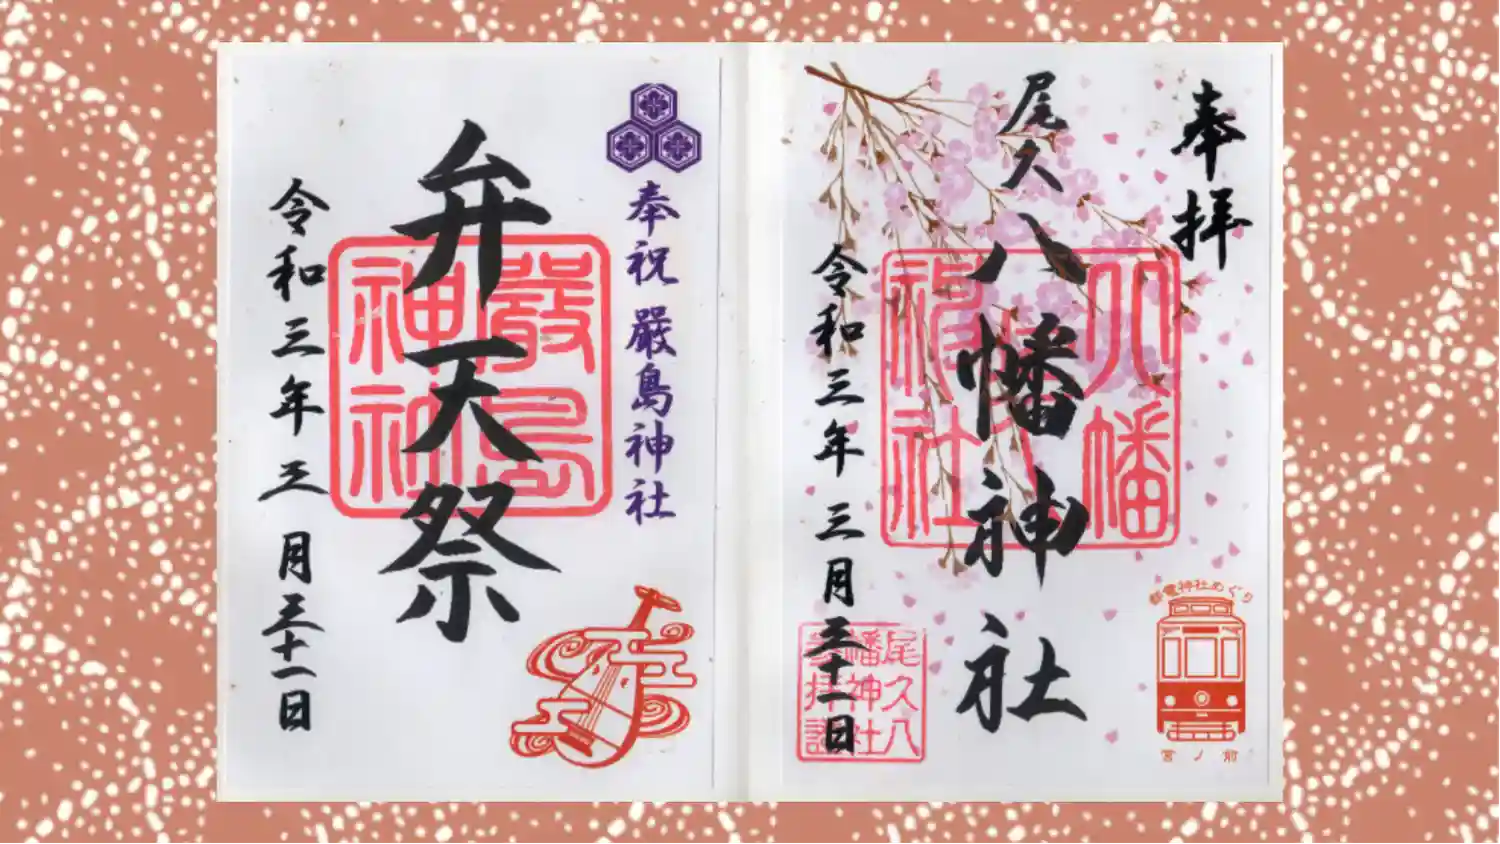 奉拝
尾久八幡神社
八幡
神社
令和三年三月三十一日
尾久八
幡神社
参拝証
都電神社めぐり
宮ノ前
奉祝 嚴島神社
弁天祭
嚴島
神神
令和三年三月三十一日